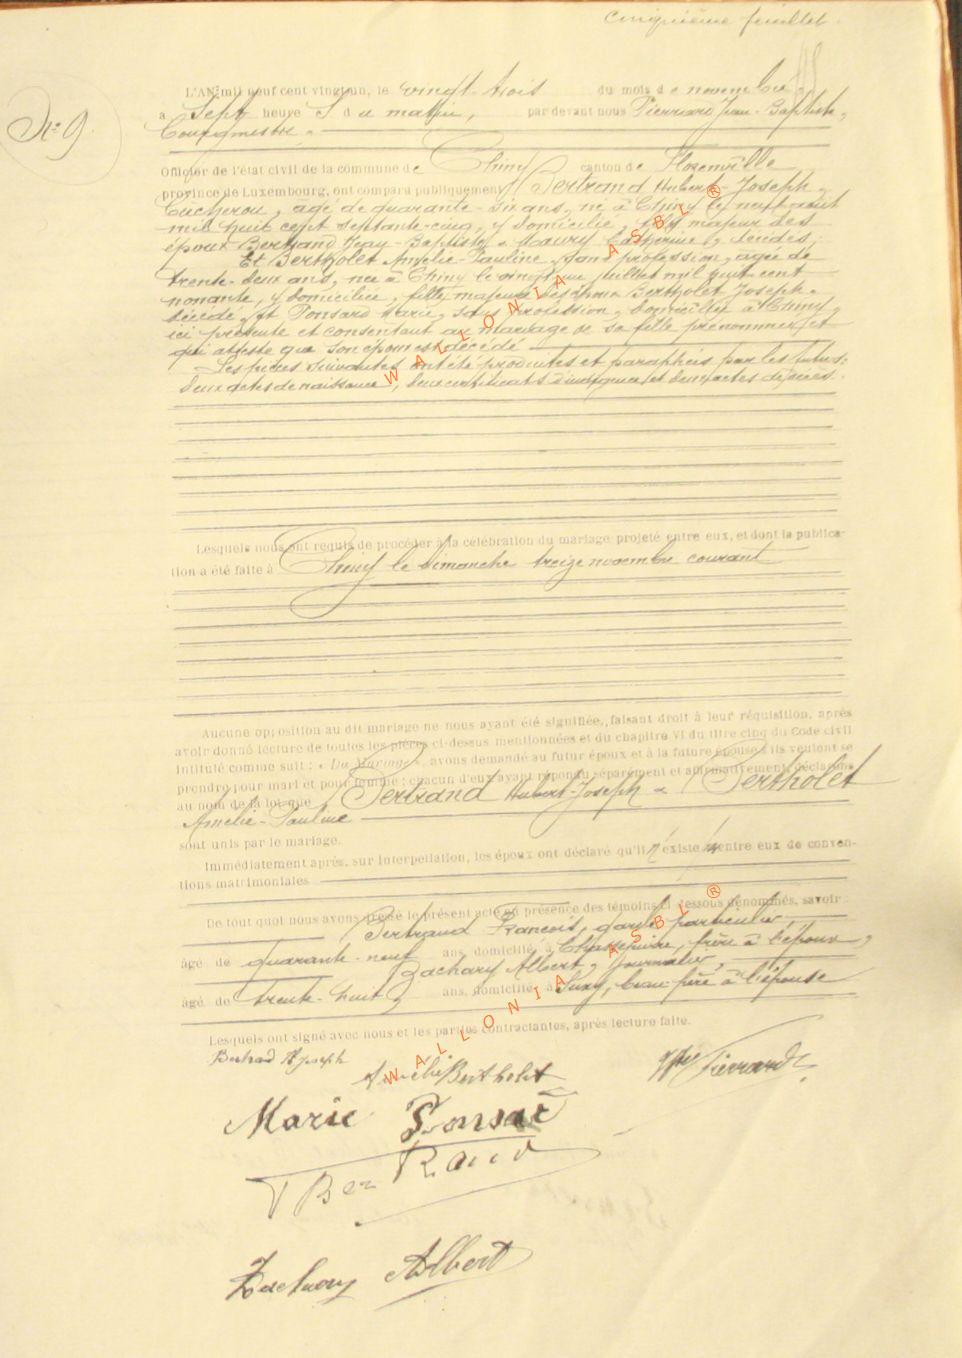 Cinquième feuillet.
N° 9
L'AN mil neuf cent vingt un, le vingt-trois du mois de novembre,
a Sept heure S du matin, par devant nous Pierrard Jean-Baptiste,
Bourgmestre
Officier de l'état civil de la commune de Chiny canton de Florenville
province de Luxembourg, ont comparu publiquement Bertrand Hubert-Joseph,
âgé de quarante-six ans, né à Chiny le neuf août
mil huit cent septante-cinq, y domicilié, fils majeur des
époux Bertrand Jean-Baptiste & Maury Catherine, décédés,
Et Bertholet Amélie-Pauline, sans profession, âgée de
trente-deux ans, née à Chiny le juillet mil huit cent
nonante, y domiciliée, fille majeure des époux Bertholet Joseph,
décédé, et Ponsard Marie, sans profession, domiciliée à Chiny,
ici présente et consentant au mariage de sa fille prénommée, et
qui atteste que son époux est décédé
Les pièces suivantes ont été produites et paraphées par les futurs:
deux actes de naissance, deux certificats d'indigence, et deux actes de décès.
Lesquels nous ont requis de procéder à la célébration du mariage projeté entre eux, et dont la publica-
tion a été faite à Chiny le dimanche treize novembre courant
Aucune opposition au dit mariage ne nous ayant été signifiée, faisant droit à leur réquisition, après
avoir donné lecture de toutes les pièces ci-dessus mentionnées et du chapitre VI du titre cinq du Code civil
intitulé comme suit : « Du Mariage », avons demandé au futur époux et à la future épouse s'ils veulent se
prendre pour mari et pour femme ; chacun d'eux ayant répondu séparément et affirmativement, déclarons
au nom de la loi que Bertrand Hubert-Joseph & Bertholet
Amélie-Pauline
sont unis par le mariage.
Immédiatement après, sur interpellation, les époux ont déclaré qu'il n'existe pas entre eux de conven-
tions matrimoniales
De tout quoi nous avons dressé le présent acte en présence des témoins ci dessous dénommés, savoir
Bertrand François, garde particulier,
âgé de quarante-neuf ans, domicilié à Chassepierre, frère à l'époux,
Zachary Albert, journalier,
âgé de trente-huit ans, domicilié à Suxy, beau-frère à l'épouse
Lesquels ont signé avec nous et les parties contractantes, après lecture faite.
Bertrand H Joseph
Amélie Bertholet
Pierrard
Marie Ponsar
Bertrand
Zachary Albert
WALLONIA ASBL ®
WALLONIA ASBL ®